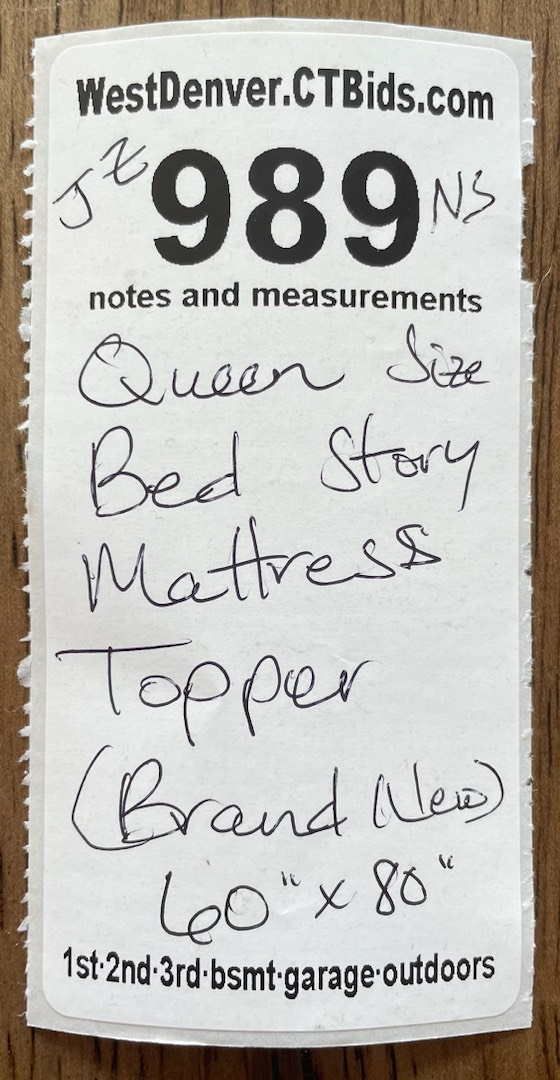 WestDenver.CTBids.com
JZ 989 NS
notes and measurements
Queen Size
Bed Story
Mattress
Topper
(Brand New)
60" x 80"
1st·2nd·3rd·bsmt·garage·outdoors